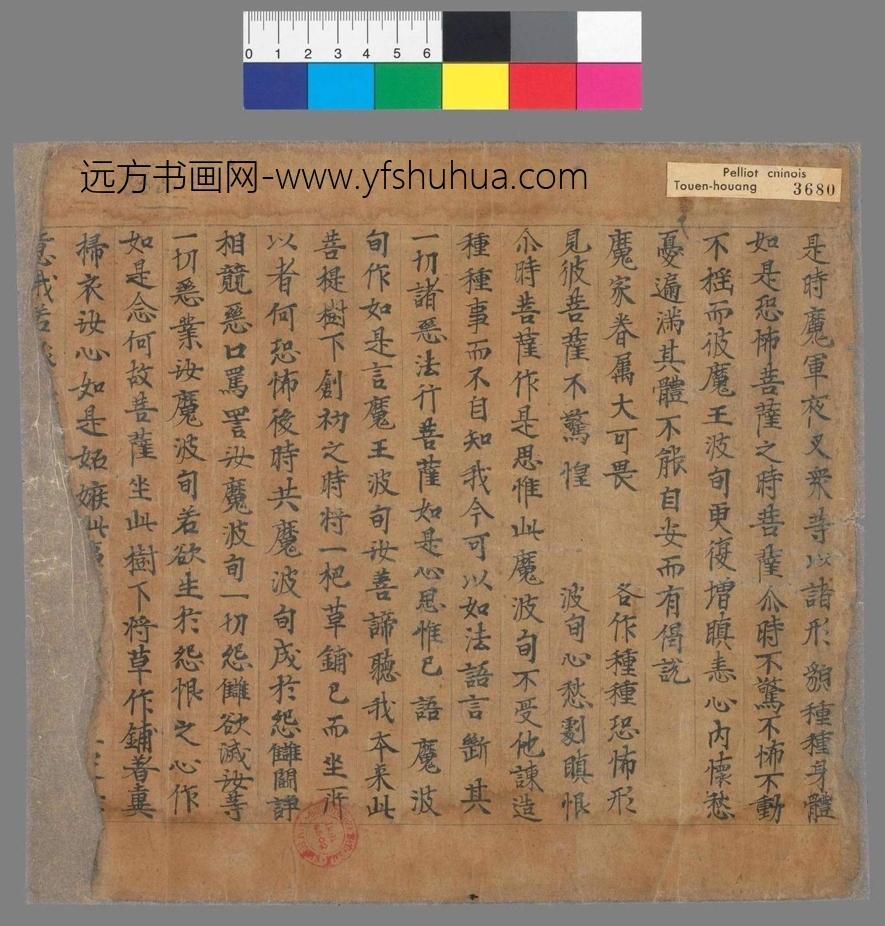 0 1 2 3 4 5 6
远方书画网-www.yfshuhua.com
Pelliot chinois
Touen-houang 3680
是時魔軍夜叉衆等以諸形貌種種身體
如是恐怖菩薩之時菩薩尒時不驚不怖不動
不揺而彼魔王波旬更復増瞋恚心內懷愁
憂遍滿其體不能自安而有偈說
魔家眷属大可畏 各作種種恐怖形
見彼菩薩不驚惶 波旬心愁劇瞋恨
尒時菩薩作是思惟此魔波旬不受他諫造
種種事而不自知我今可以如法語言斷其
一切諸惡法行菩薩如是心思惟已語魔波
旬作如是言魔王波旬汝善諦聽我本来此
菩提樹下創初之時將一把草鋪已而坐所
以者何恐怖後時共魔波旬成於怨讎鬭諍
相競惡口罵詈汝魔波旬一切怨讎欲滅汝等
一切惡業汝魔波旬若欲生於怨恨之心作
如是念何故菩薩坐此樹下將草作鋪著糞
掃衣汝心如是妬嫉此
意我若